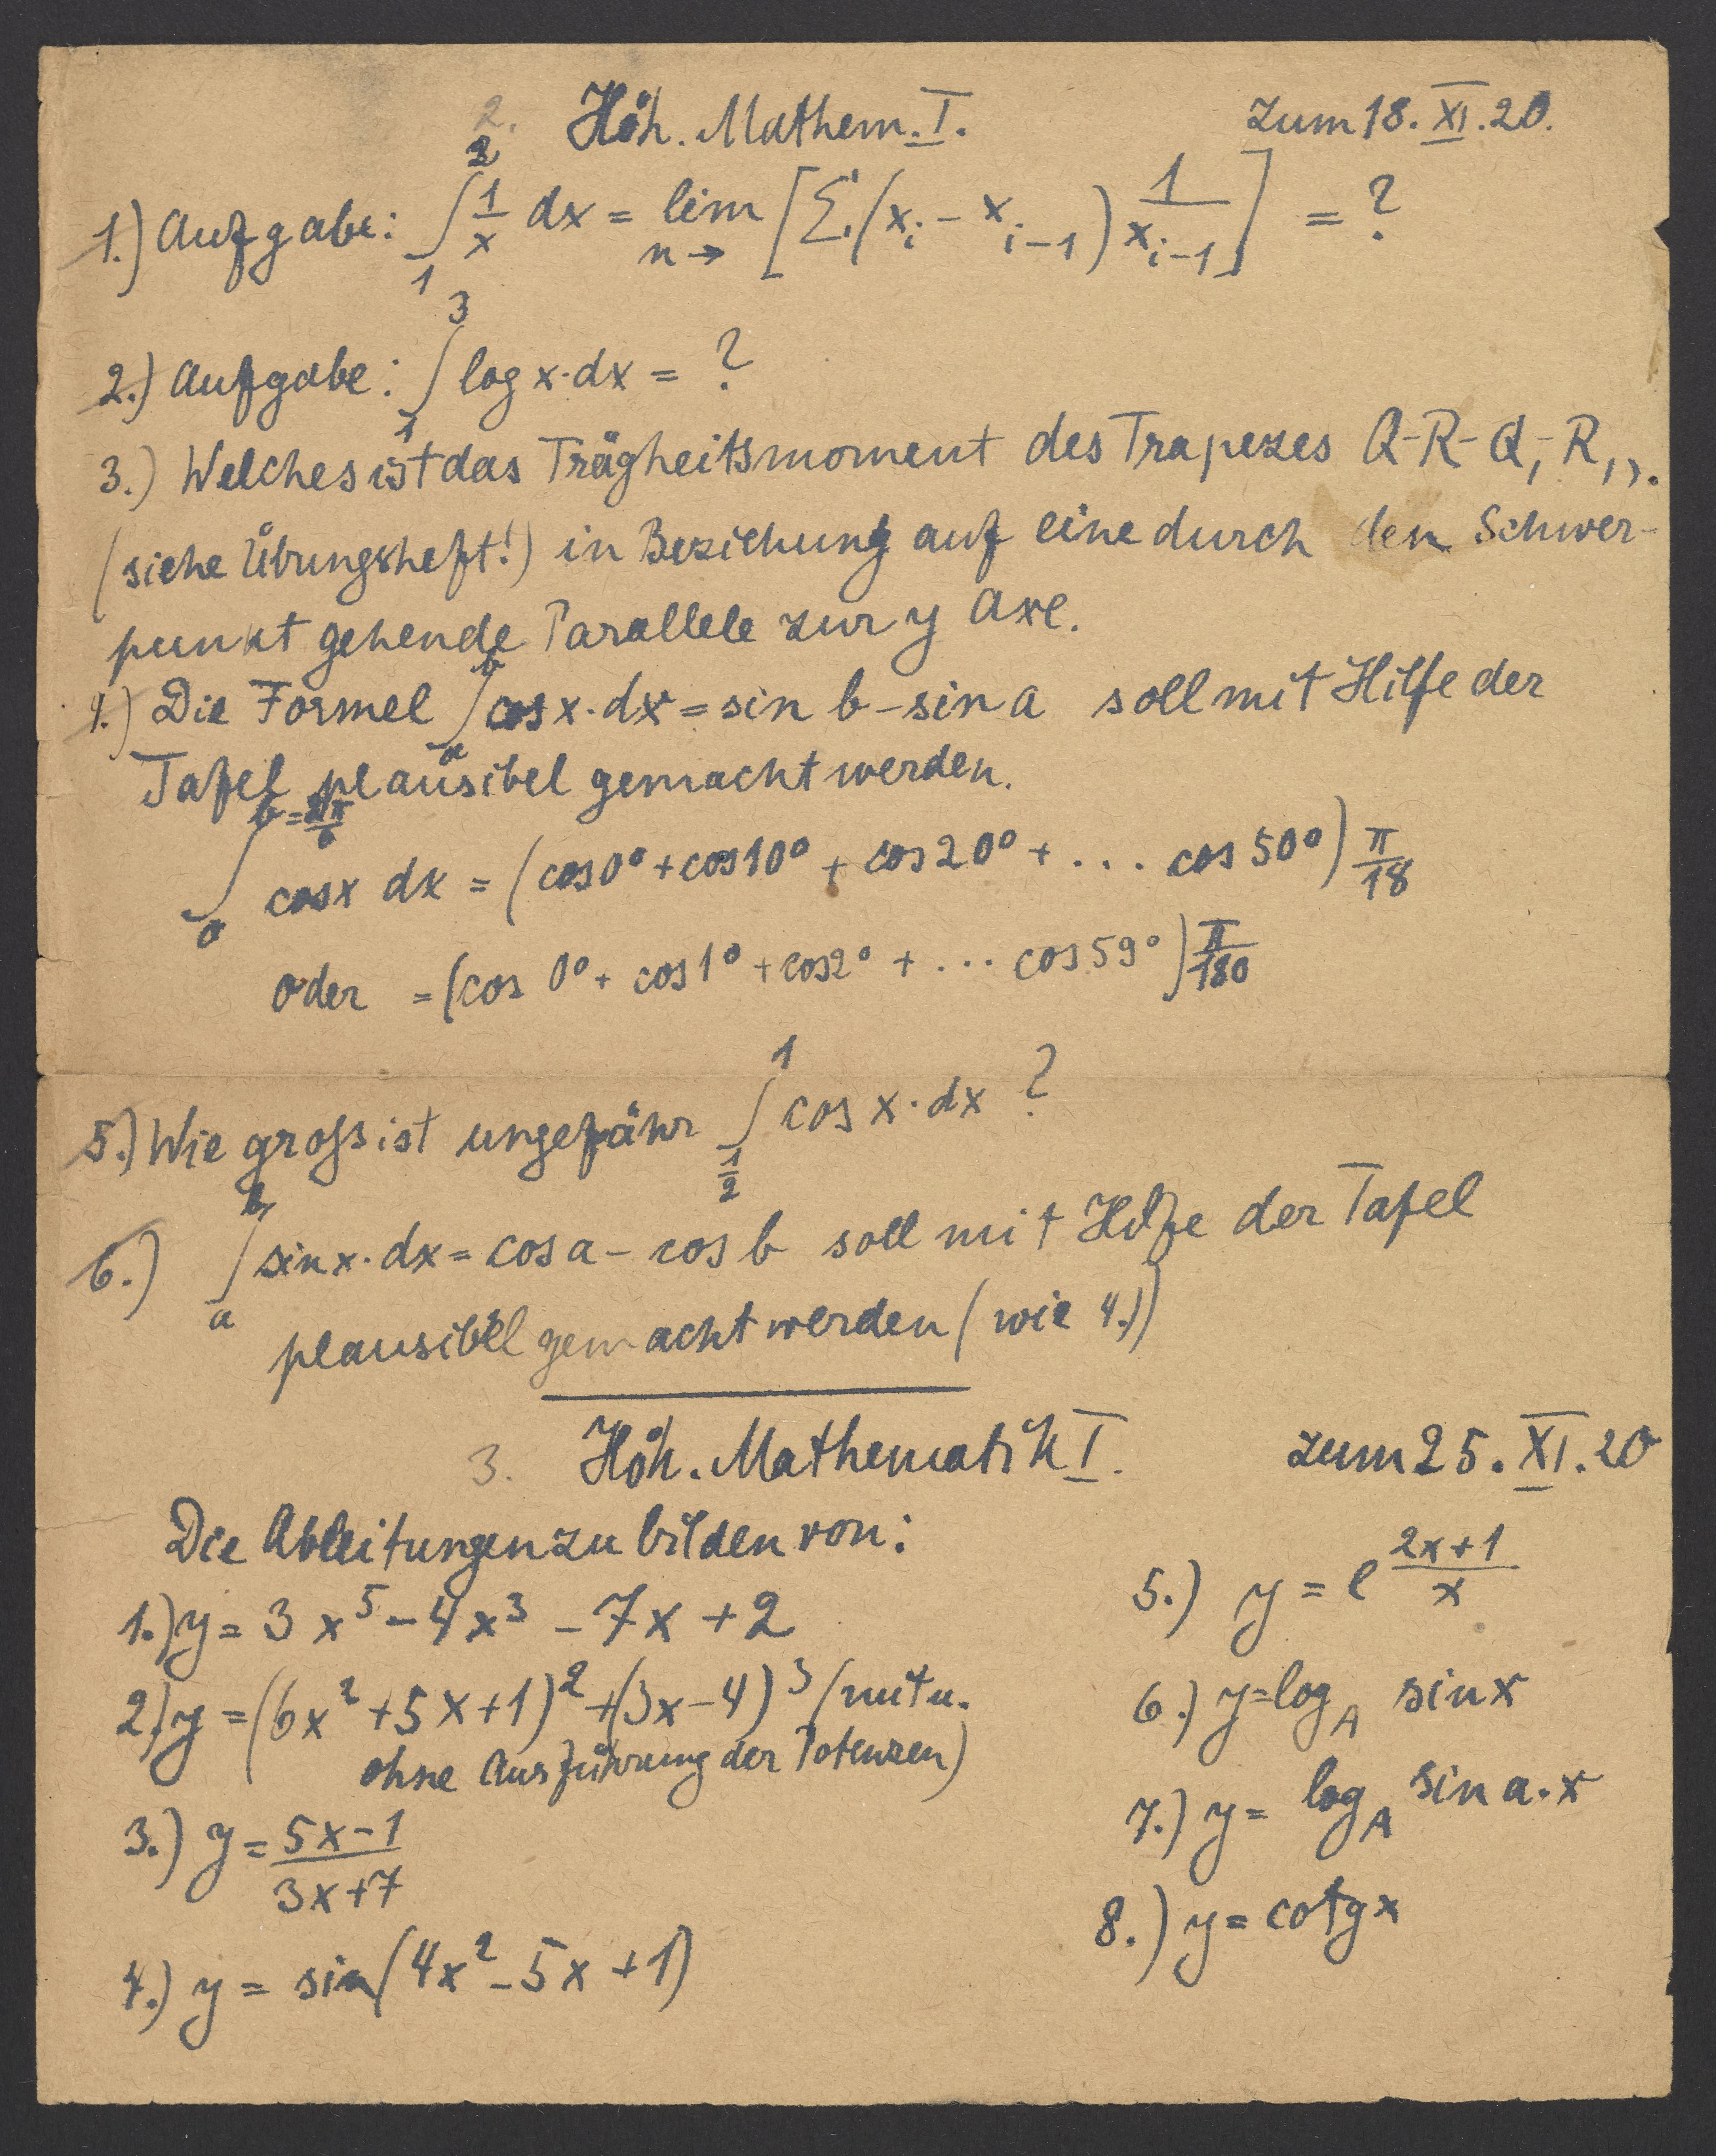 2. Höh. Mathem. I. zum 18. XI. 20.
1.) Aufgabe: ∫₁² 1/x dx = lim n→ [Σ (x_i − x_{i−1}) 1/x_{i−1}] = ?
2.) Aufgabe: ∫₁³ log x·dx = ?
3.) Welches ist das Trägheitsmoment des Trapezes Q-R-Q₁-R₁,.
(siehe Übungsheft!) in Beziehung auf eine durch den Schwer-
punkt gehende Parallele zur y Axe.
4.) Die Formel ∫ₐᵇ cos x·dx = sin b − sin a soll mit Hilfe der
Tafel plausibel gemacht werden.
∫ cos x dx = (cos 0° + cos 10° + cos 20° + ... cos 50°) π/18
oder = (cos 0° + cos 1° + cos 2° + ... cos 59°) π/180
5.) Wie gross ist ungefähr ∫_{1/2}^{1} cos x·dx ?
6.) ∫ₐᵇ sin x·dx = cos a − cos b soll mit Hilfe der Tafel
plausibel gemacht werden (wie 4.))
3. Höh. Mathematik I. zum 25. XI. 20
Die Ableitungen zu bilden von:
1.) y = 3x⁵ − 4x³ − 7x + 2
2.) y = (6x² + 5x + 1)² + (3x − 4)³ (mit u.
ohne Ausführung der Potenzen)
3.) y = (5x−1)/(3x+7)
4.) y = sin (4x² − 5x + 1)
5.) y = e^{(2x+1)/x}
6.) y = log_A sin x
7.) y = log_A sin a·x
8.) y = cotg x